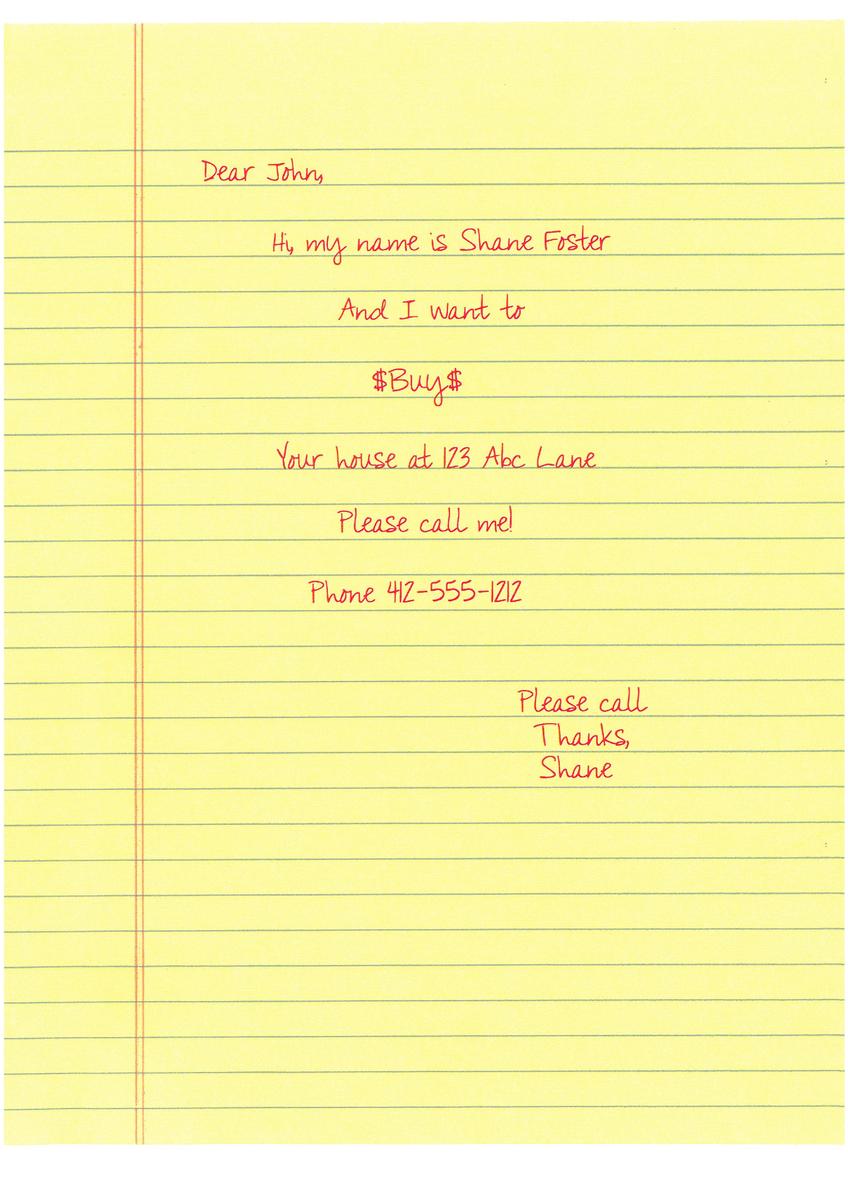 Dear John,
Hi, my name is Shane Foster
And I want to
$Buy$
Your house at 123 Abc Lane
Please call me!
Phone 412-555-1212
Please call
Thanks,
Shane